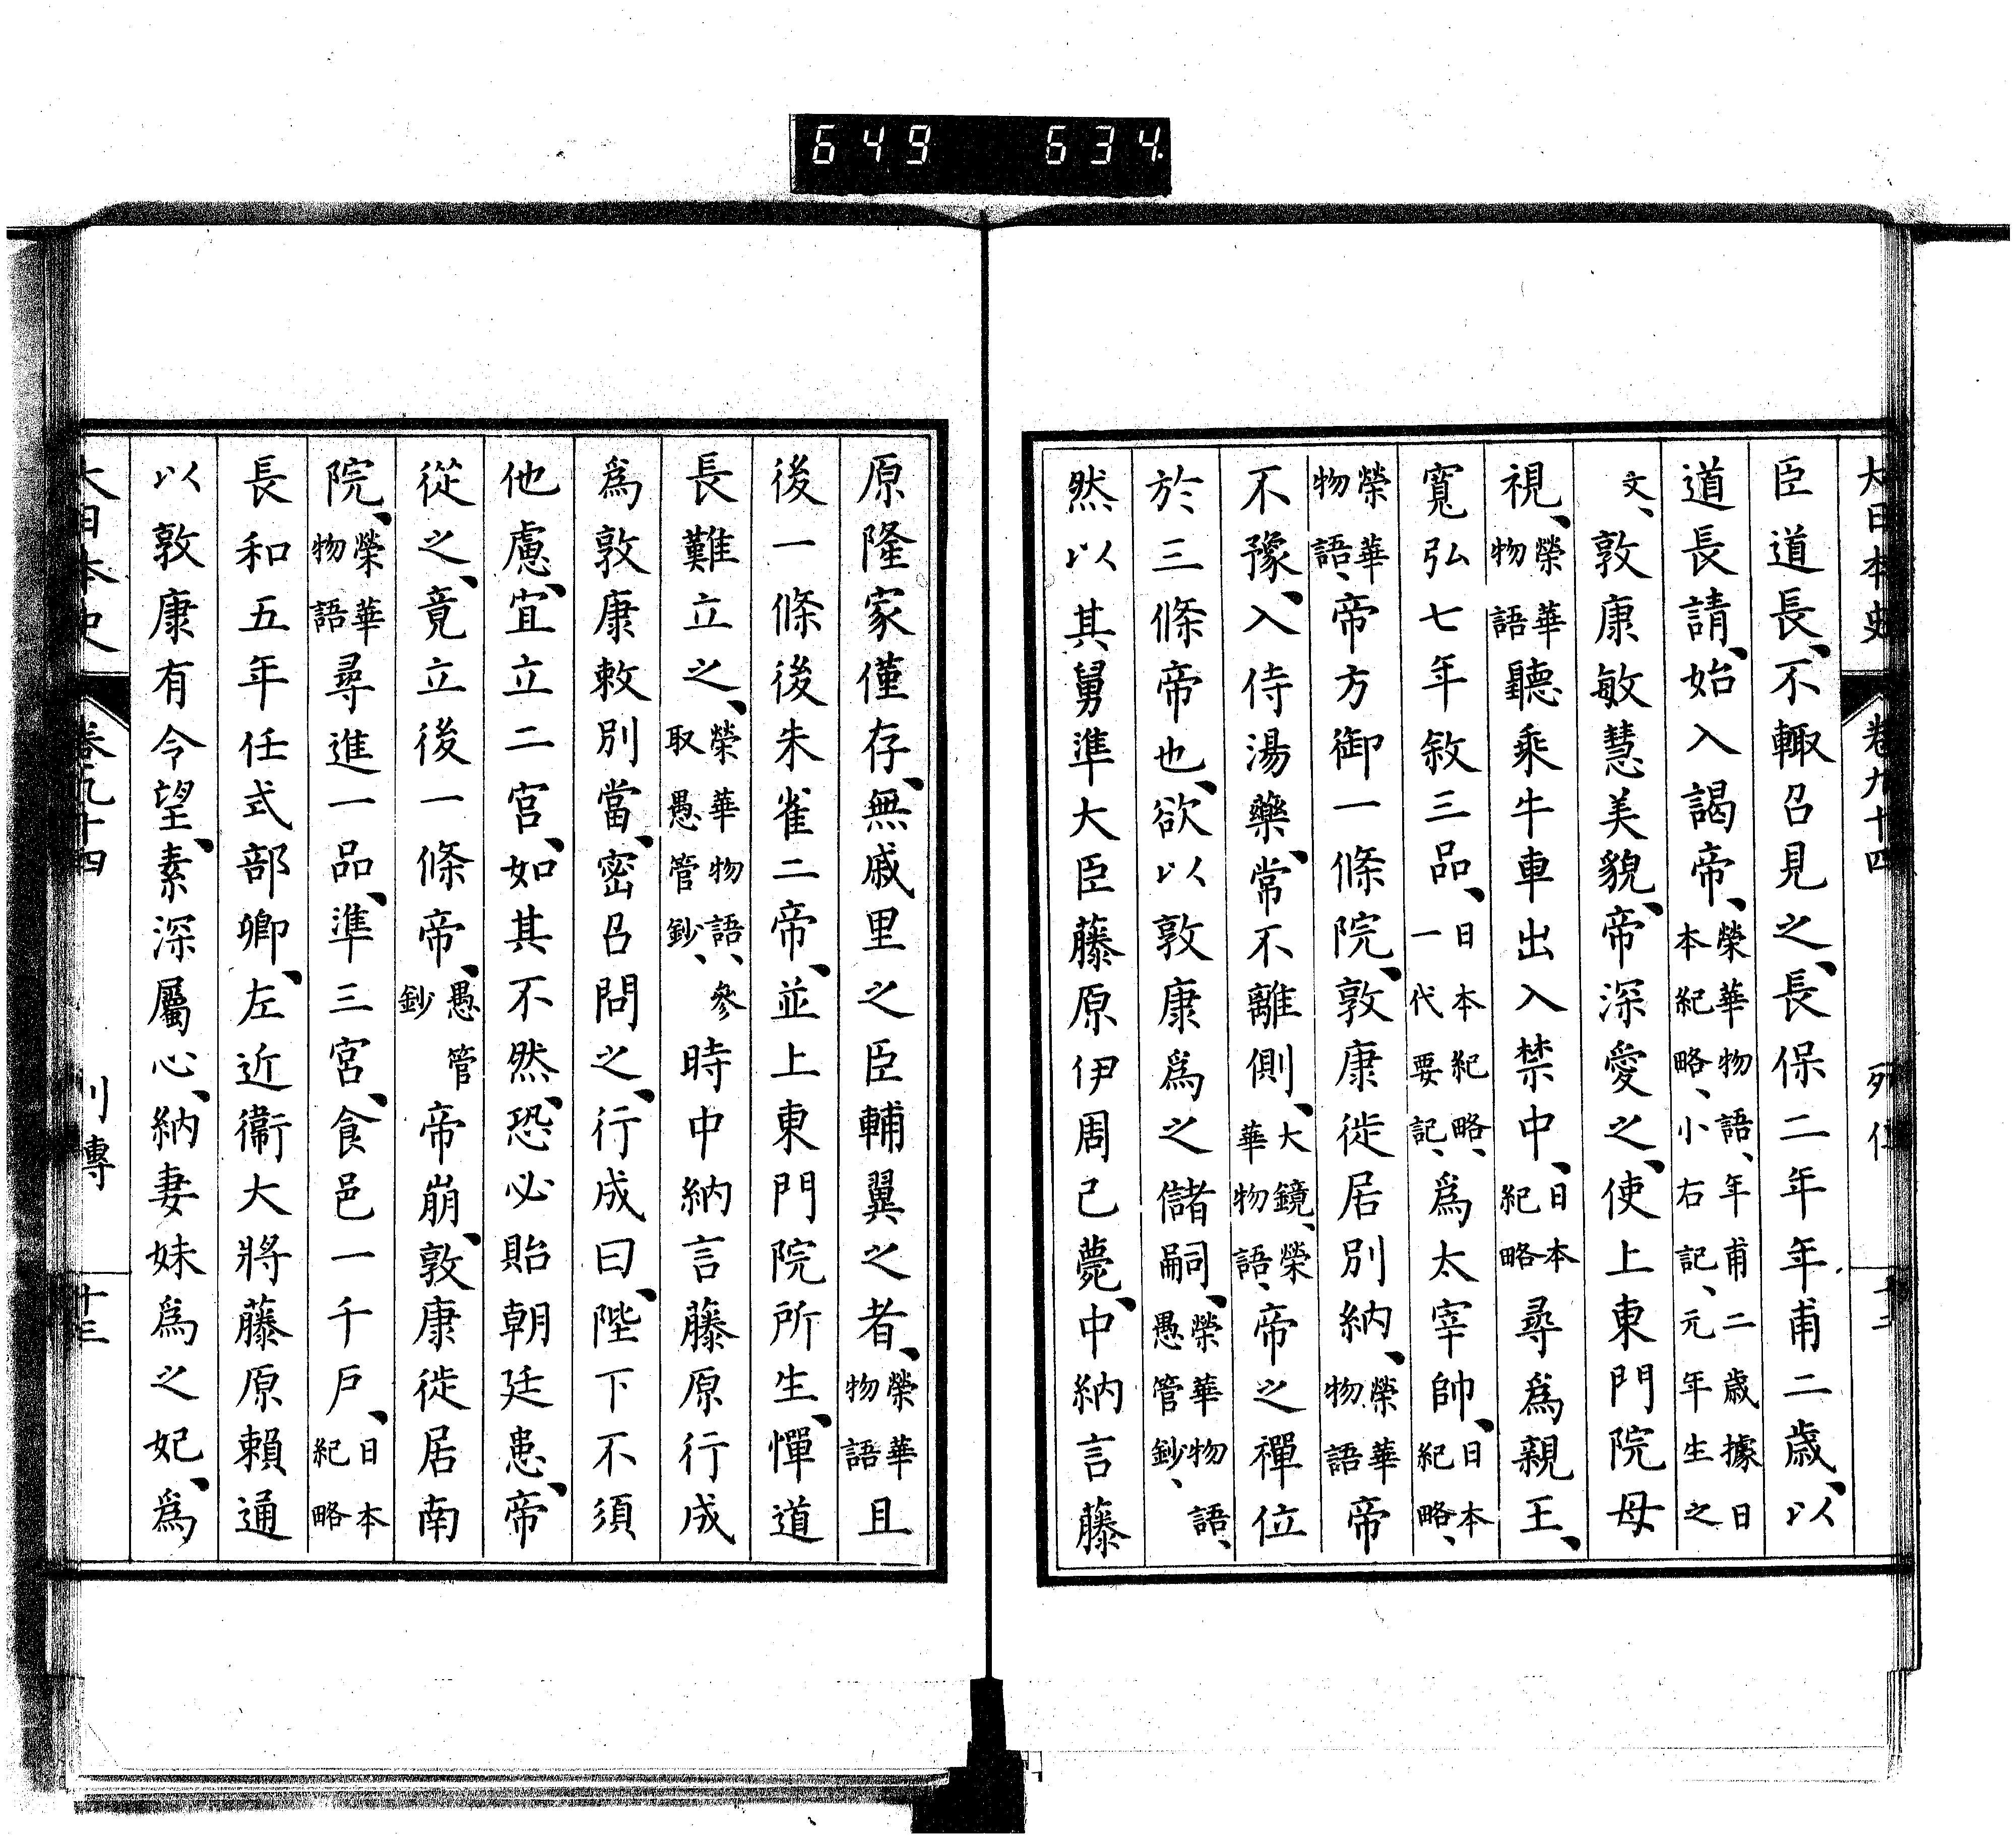 649 634
大日本史 卷九十四 列傳
臣道長、不輙召見之、長保二年年甫二歲、以
道長請、始入謁帝、榮華物語、年甫二歲據日本紀略、小右記、元年生之
文、敦康敏慧美貌、帝深愛之、使上東門院母
視、榮華物語聽乘牛車出入禁中、日本紀略尋爲親王、
寬弘七年敘三品、日本紀略、一代要記、爲太宰帥、日本紀略、
榮華物語、帝方御一條院、敦康徙居別納、榮華物語帝
不豫、入侍湯藥、常不離側、大鏡、榮華物語、帝之禪位
於三條帝也、欲以敦康爲之儲嗣、榮華物語、愚管鈔、
然以其舅準大臣藤原伊周已薨、中納言藤
原隆家僅存、無戚里之臣輔翼之者、榮華物語且
後一條後朱雀二帝、並上東門院所生、憚道
長難立之、榮華物語、參取愚管鈔、時中納言藤原行成
爲敦康敕別當、密召問之、行成曰、陛下不須
他慮、宜立二宮、如其不然、恐必貽朝廷患、帝
從之、竟立後一條帝、愚管鈔帝崩、敦康徙居南
院、榮華物語尋進一品、準三宮、食邑一千戶、日本紀略
長和五年任式部卿、左近衞大將藤原賴通
以敦康有令望、素深屬心、納妻妹爲之妃、爲
大日本史 卷九十四 列傳 十三